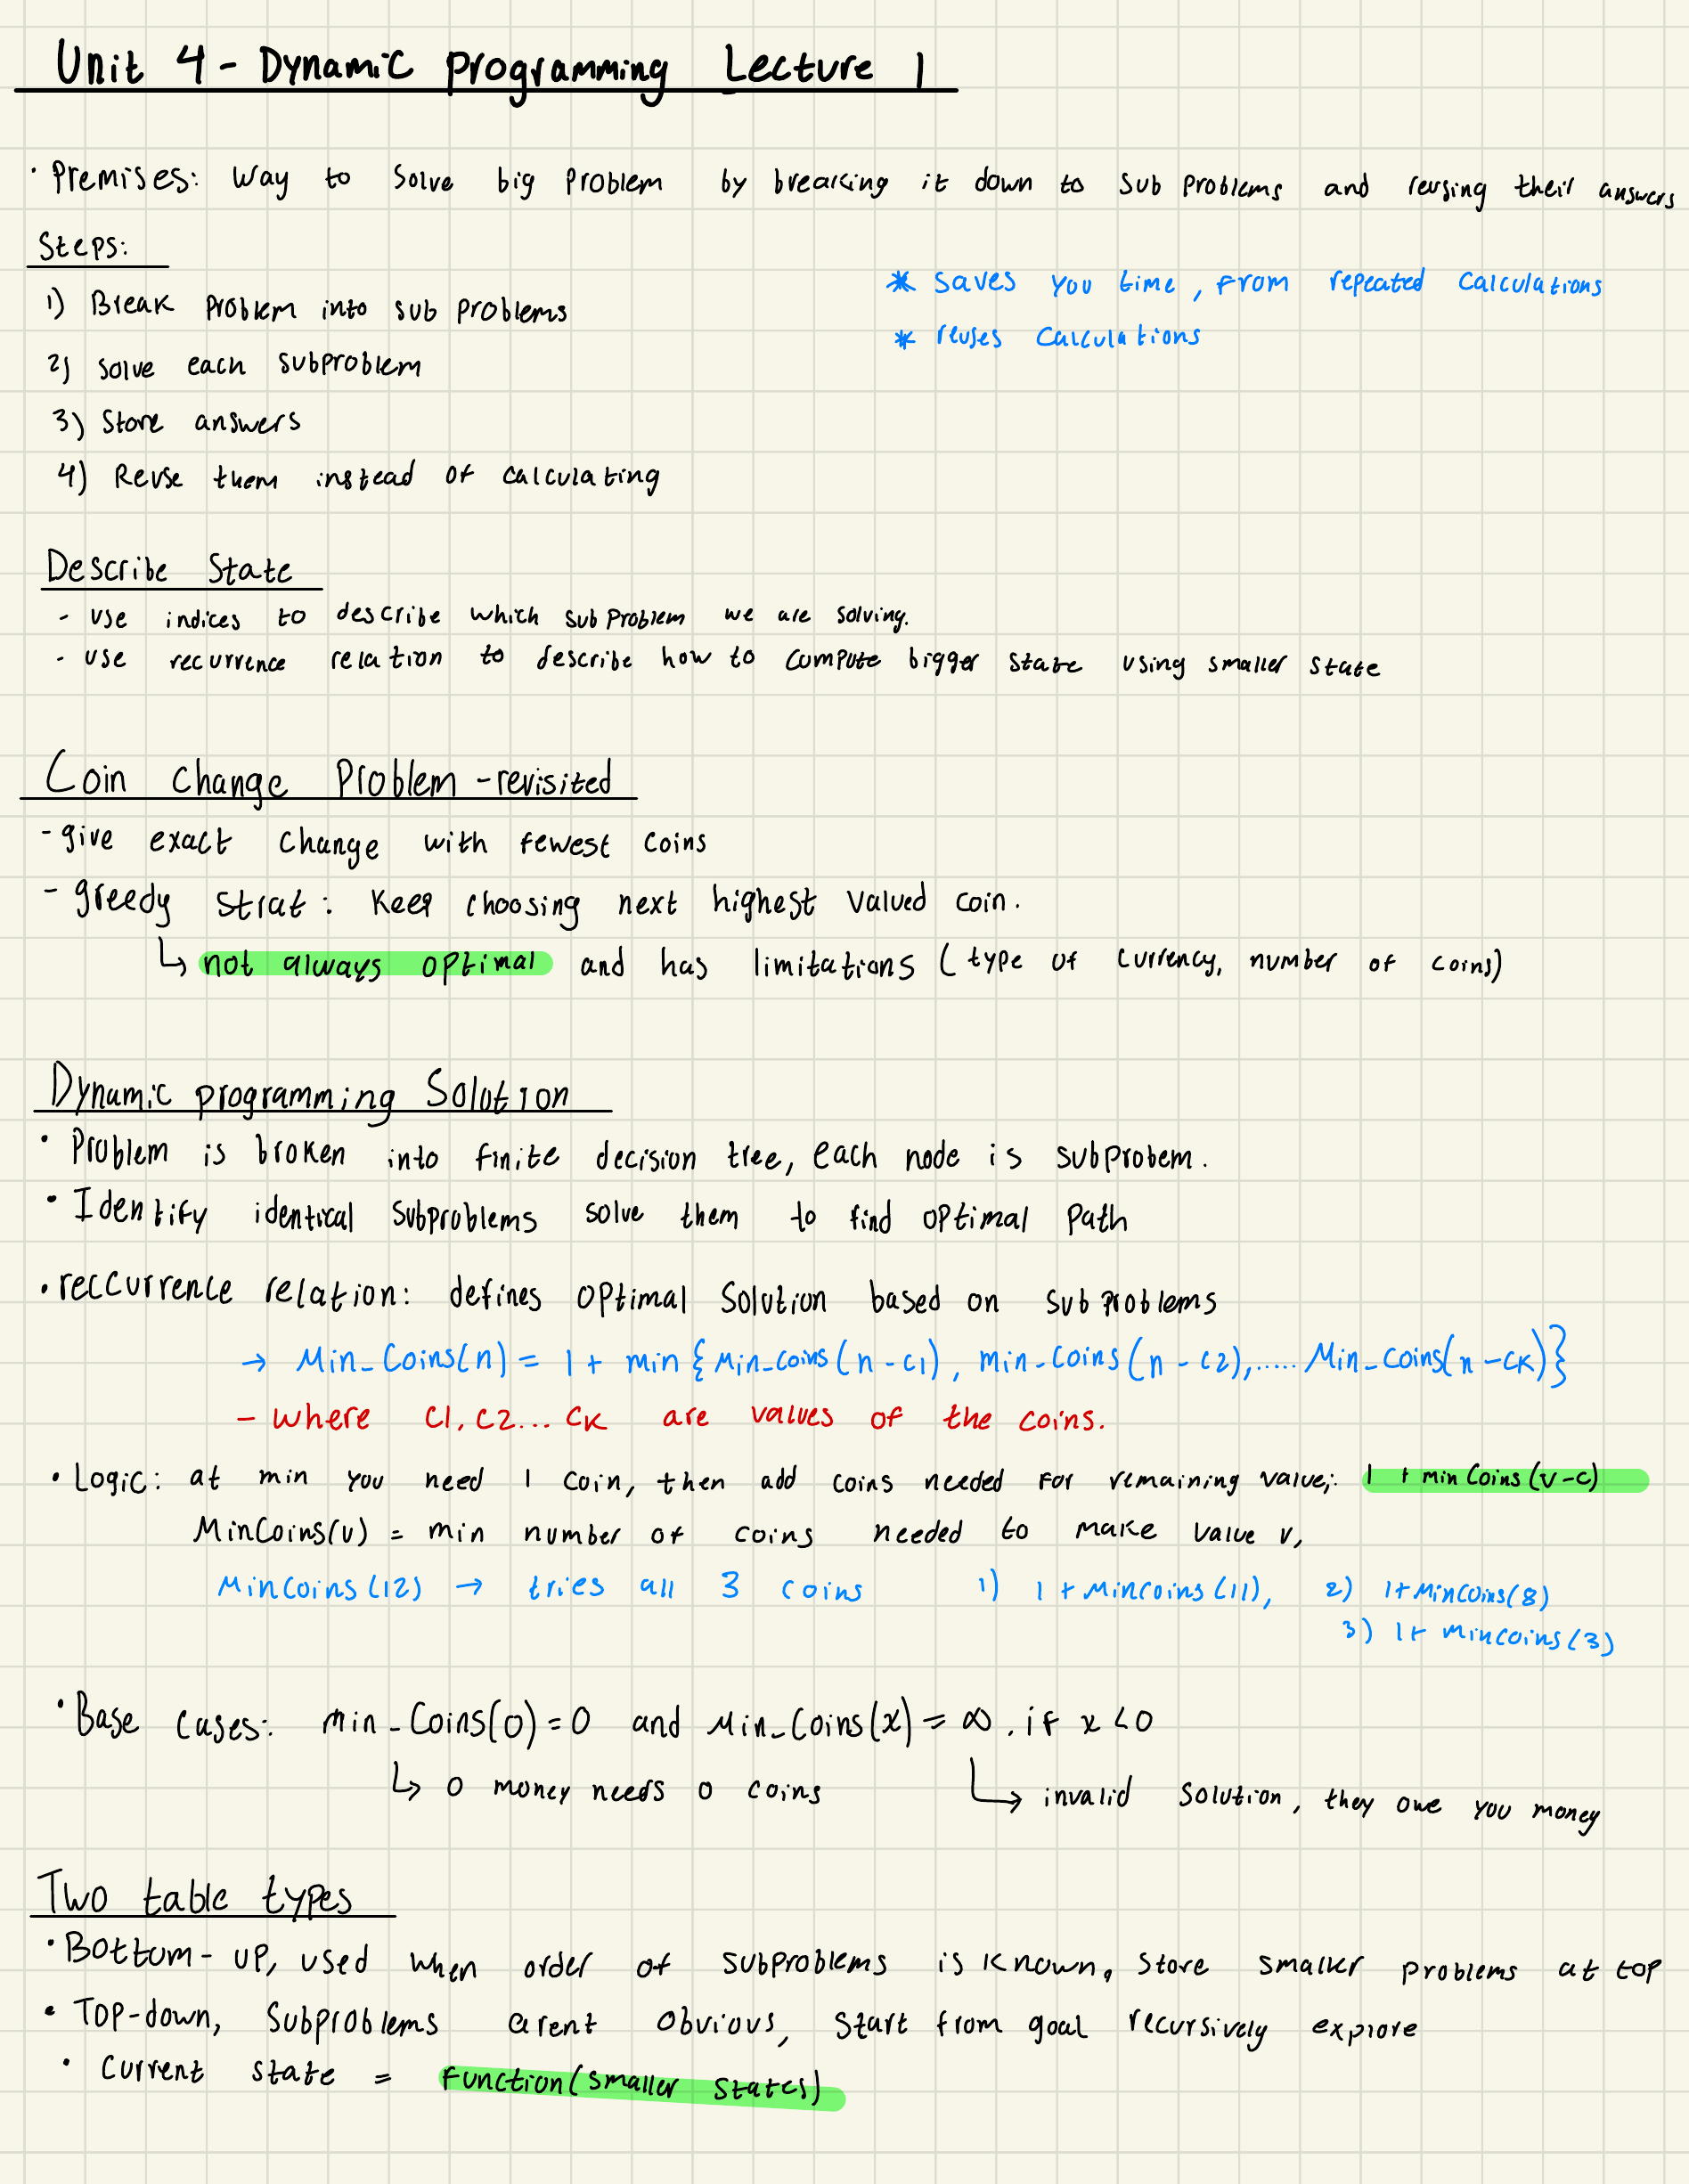 Unit 4 - Dynamic programming Lecture 1
• Premises: Way to solve big problem by breaking it down to sub problems and reusing their answers
Steps:
* saves you time, from repeated calculations
1) Break problem into sub problems
* reuses calculations
2) solve each subproblem
3) Store answers
4) Reuse them instead of calculating
Describe State
- use indices to describe which subproblem we are solving.
- use recurrence relation to describe how to compute bigger state using smaller state
Coin Change Problem - revisited
- give exact change with fewest coins
- greedy strat: Keep choosing next highest valued coin.
↳ not always optimal and has limitations (type of currency, number of coins)
Dynamic programming Solution
• Problem is broken into finite decision tree, each node is subprobem.
• Identify identical subproblems solve them to find optimal path
• reccurrence relation: defines optimal solution based on subproblems
→ Min_Coins(n) = 1 + min {Min_coins(n-c1), min_coins(n-c2),..... Min_coins(n-cK)}
- where c1, c2... cK are values of the coins.
• Logic: at min you need 1 coin, then add coins needed for remaining value,: 1 + min Coins(v-c)
MinCoins(v) = min number of coins needed to make value v,
MinCoins(12) → tries all 3 coins 1) 1+Mincoins(11), 2) 1+Mincoins(8)
3) 1+ mincoins(3)
• Base cases: min_Coins(0)=0 and Min_Coins(x)=∞, if x<0
↳ 0 money needs 0 coins ↳ invalid solution, they owe you money
Two table types
• Bottom-up, used when order of subproblems is known, store smaller problems at top
• Top-down, subproblems arent obvious, start from goal recursively explore
• Current state = function(smaller states)